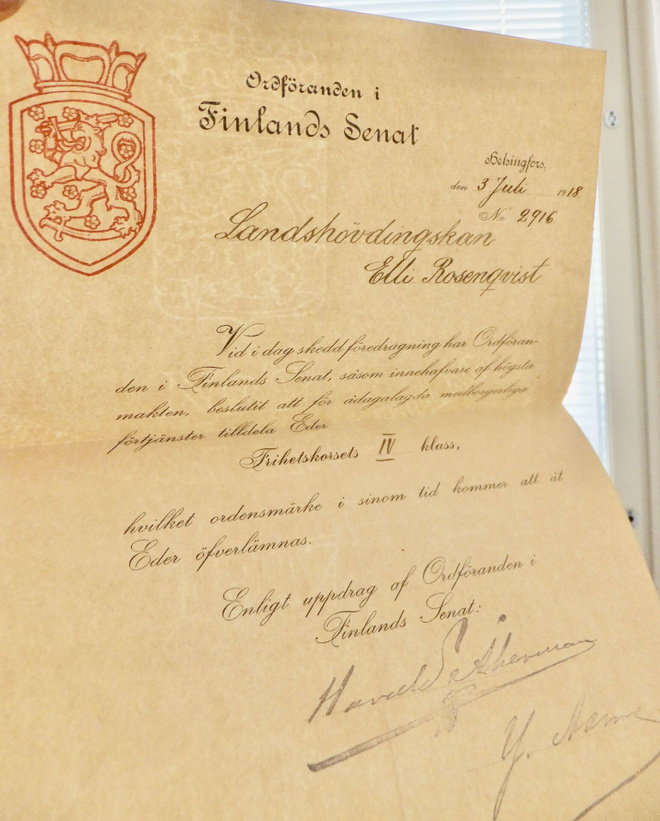 Ordföranden i
Finlands Senat
Helsingfors,
den 3 Juli 1918
No 2916
Landshövdingskan
Elli Rosenqvist
Vid i dag skedd föredragning har Ordföran-
den i Finlands Senat, såsom innehafvare af högsta
makten, beslutit att för ådagalagda medborgerliga
förtjänster tilldela Eder
Frihetskorsets IV klass,
hvilket ordensmärke i sinom tid kommer att åt
Eder öfverlämnas.
Enligt uppdrag af Ordföranden i
Finlands Senat:
Harald Åkerman
Y.